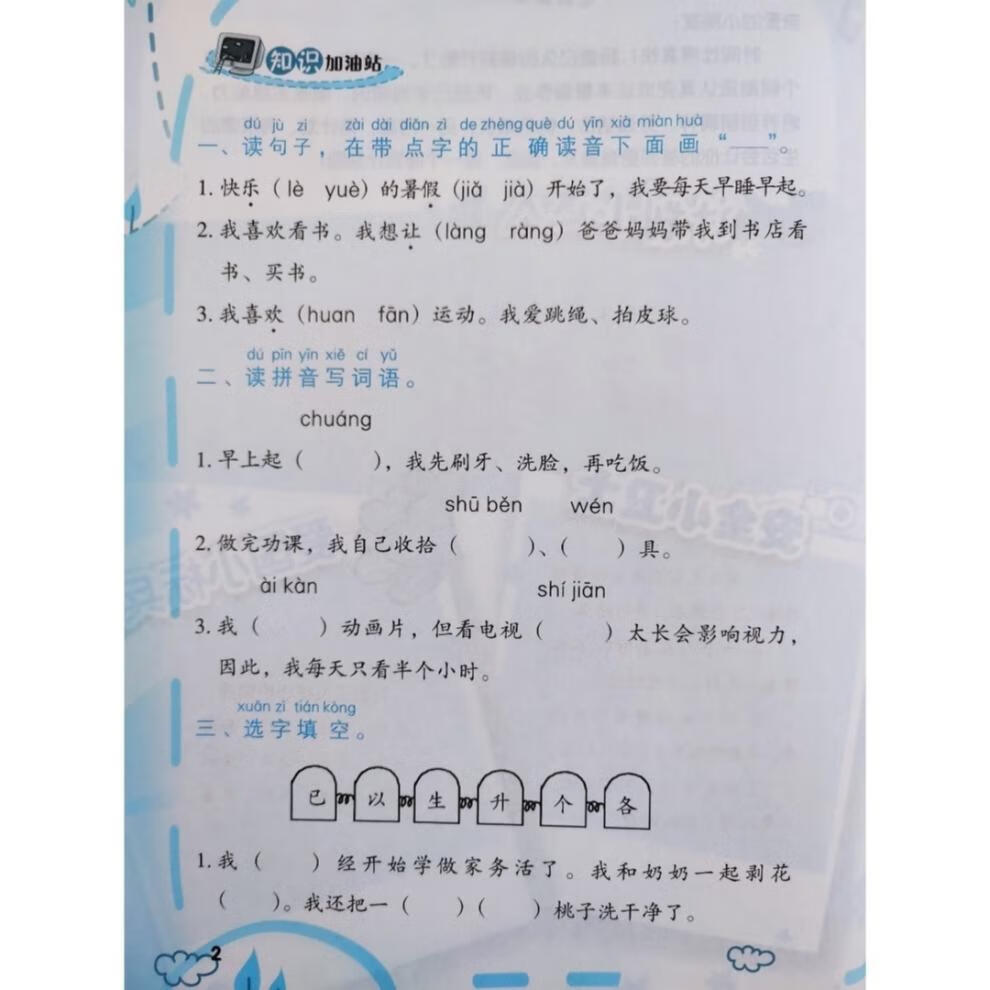 知识加油站
dú jù zi zài dài diǎn zì de zhèng què dú yīn xià miàn huà
一、读句子，在带点字的正确读音下面画“___”。
1. 快乐（lè yuè）的暑假（jiǎ jià）开始了，我要每天早睡早起。
2. 我喜欢看书。我想让（làng ràng）爸爸妈妈带我到书店看
书、买书。
3. 我喜欢（huan fān）运动。我爱跳绳、拍皮球。
dú pīn yīn xiě cí yǔ
二、读拼音写词语。
chuáng
1. 早上起（ ），我先刷牙、洗脸，再吃饭。
shū běn wén
2. 做完功课，我自己收拾（ ）、（ ）具。
ài kàn shí jiān
3. 我（ ）动画片，但看电视（ ）太长会影响视力，
因此，我每天只看半个小时。
xuǎn zì tián kòng
三、选字填空。
已 以 生 升 个 各
1. 我（ ）经开始学做家务活了。我和奶奶一起剥花
（ ）。我还把一（ ）（ ）桃子洗干净了。
2